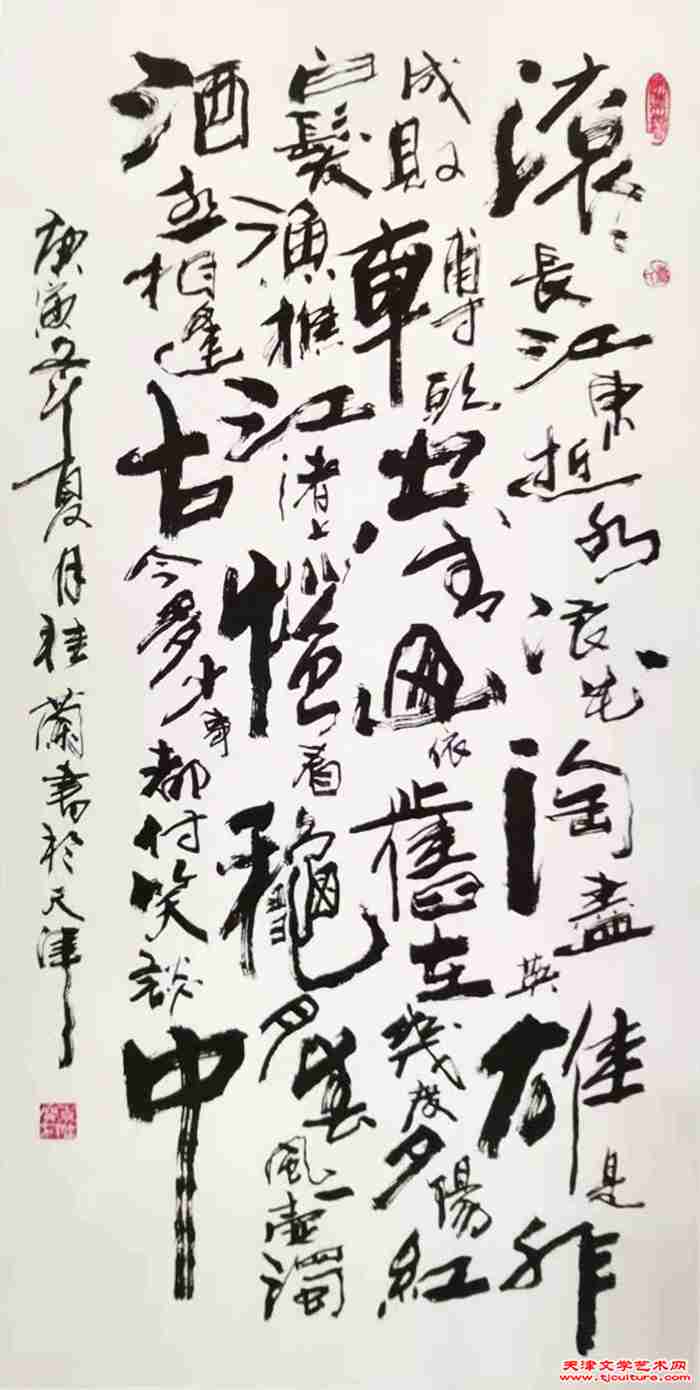 滚々長江東逝水浪花淘盡英雄是非
成敗轉頭空青山依舊在幾度夕陽紅
白髮漁樵江渚上慣看龝月春風一壺濁
酒喜相逢古今多少事都付笑談中
庚寅年夏月桂蘭書於天津
天津文学艺术网
www.tjculture.com